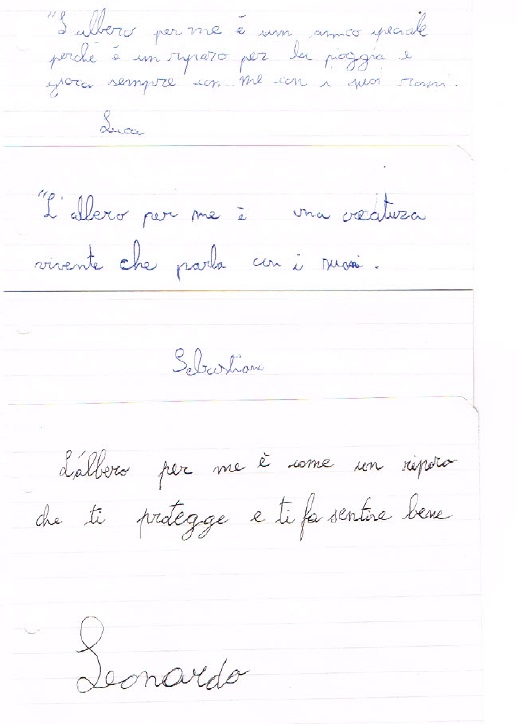 "L'albero per me è un amico speciale
perché è un riparo per la pioggia e
gioca sempre con me con i suoi rami.
Luca
"L'albero per me è una creatura
vivente che parla con i rumori.
Sebastiano
L'albero per me è come un riparo
che ti protegge e ti fa sentire bene
Leonardo